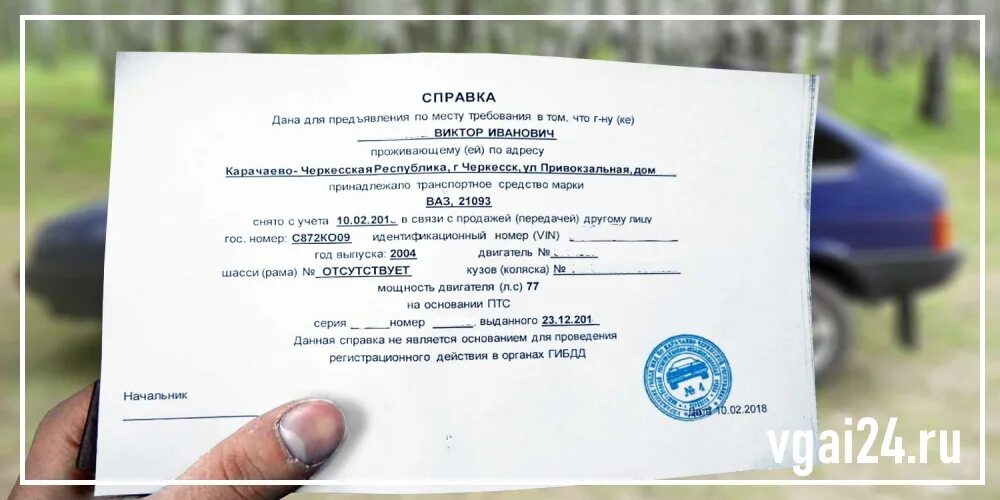 СПРАВКА
Дана для предъявления по месту требования в том, что г-ну (ке)
ВИКТОР ИВАНОВИЧ
проживающему (ей) по адресу
Карачаево- Черкесская Республика, г Черкесск, ул Привокзальная, дом
принадлежало транспортное средство марки
ВАЗ, 21093
снято с учета 10.02.201 в связи с продажей (передачей) другому лицу
гос. номер: С872КО09 идентификационный номер (VIN)
год выпуска: 2004 двигатель №
шасси (рама) № ОТСУТСТВУЕТ кузов (коляска) №
мощность двигателя (л.с) 77
на основании ПТС
серия номер , выданного 23.12.201
Данная справка не является основанием для проведения
регистрационного действия в органах ГИБДД
Начальник
№ 4
Дата 10.02.2018
vgai24.ru